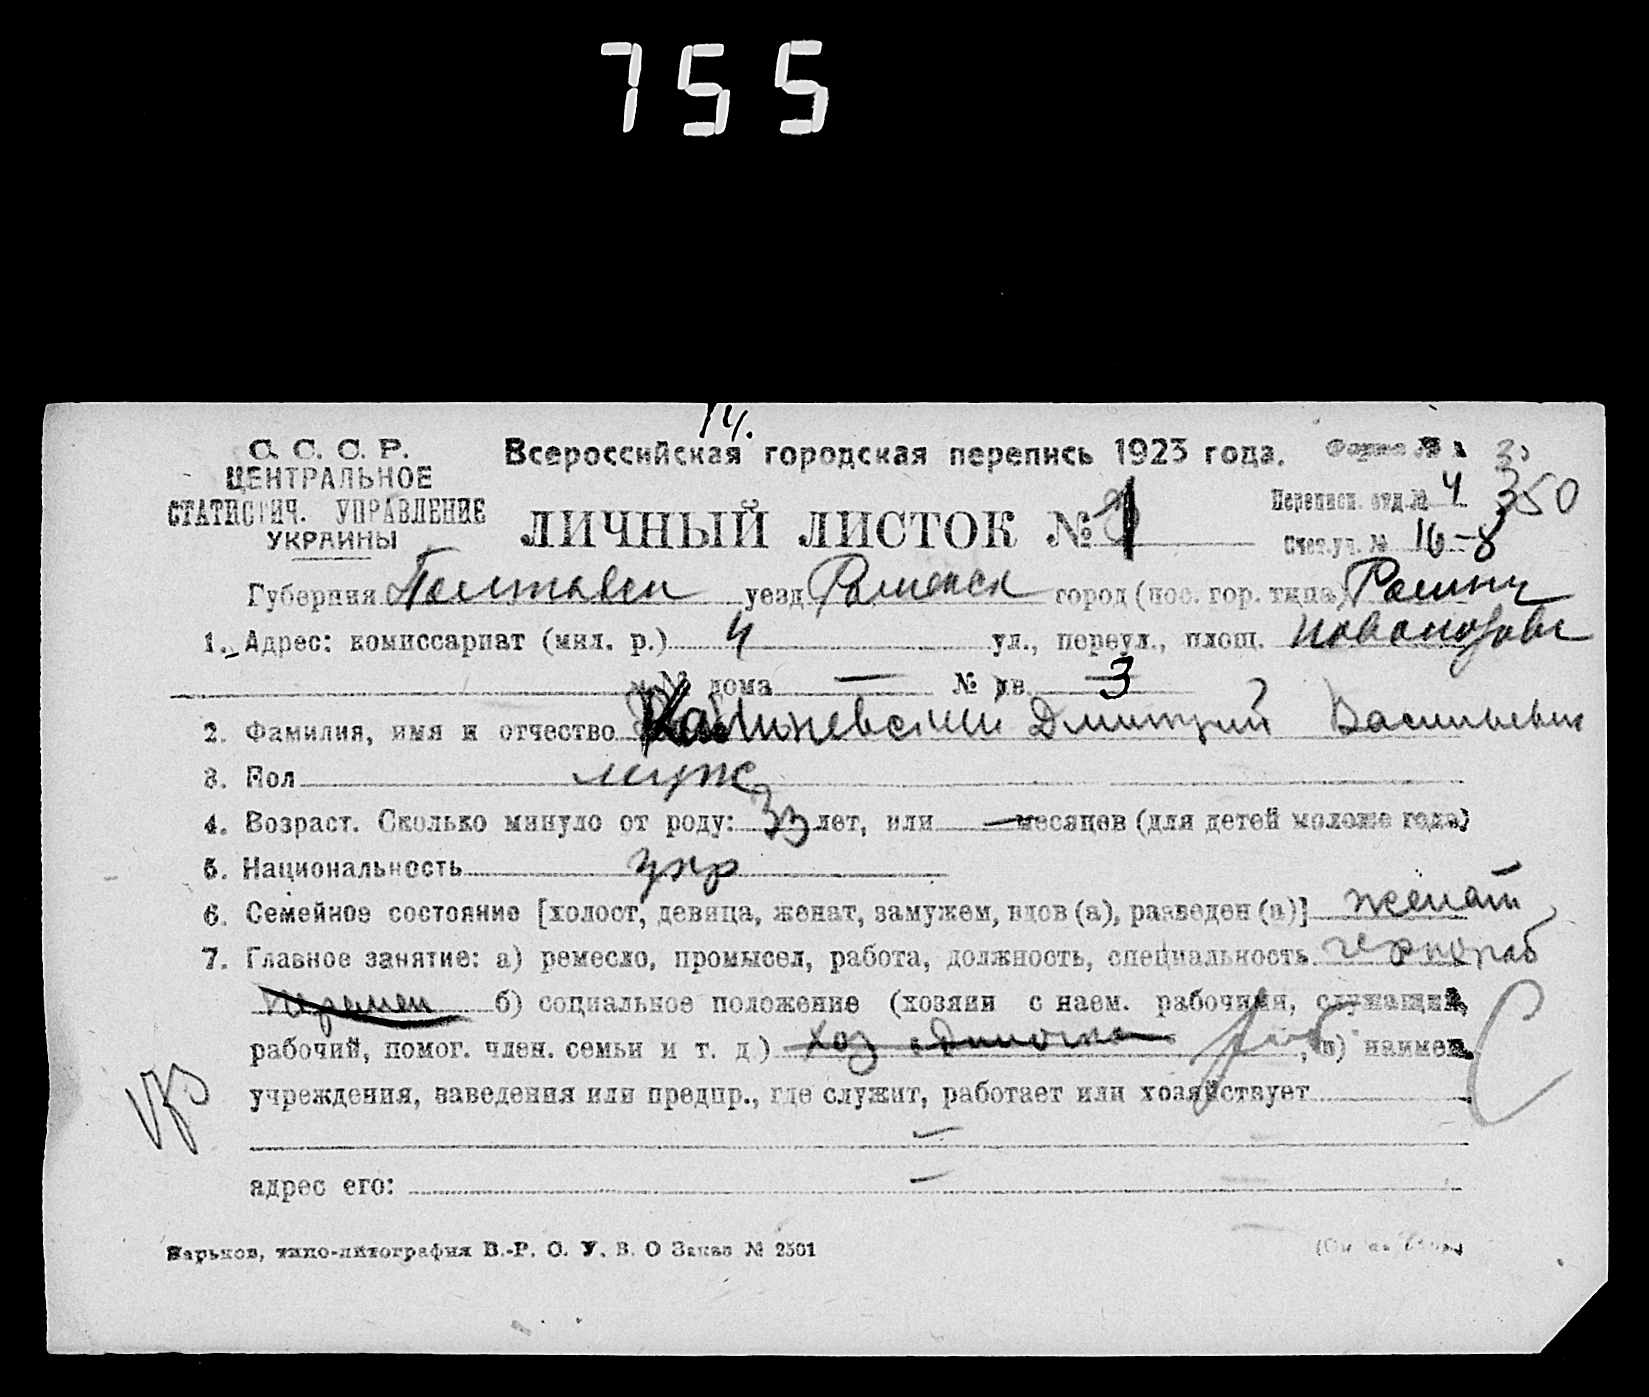 755
14.
С. С. С. Р.
ЦЕНТРАЛЬНОЕ
СТАТИСТИЧ. УПРАВЛЕНИЕ
УКРАИНЫ
Всероссийская городская перепись 1923 года.
Форма № 1
Переписн. отд. № 4 350
ЛИЧНЫЙ ЛИСТОК № 1
Счет. уч. № 16-8
Губерния Полтавск уезд Роменск город (пос. гор. типа) Ромны
1. Адрес: комиссариат (мил. р.) 4 ул., переул., площ.
и № дома — № кв. 3
2. Фамилия, имя и отчество Калиневский Дмитрий Васильевич
3. Пол муж
4. Возраст. Сколько минуло от роду: 33 лет, или — месяцев (для детей моложе года)
5. Национальность укр
6. Семейное состояние [холост, девица, женат, замужем, вдов (а), разведен (а)] женат
7. Главное занятие: а) ремесло, промысел, работа, должность, специальность чернораб
б) социальное положение (хозяин с наем. рабочими, служащий,
рабочий, помог. член. семьи и т. д.) хоз одиночка раб, в) наимен.
учреждения, заведения или предпр., где служит, работает или хозяйствует
—
адрес его: —
Харьков, типо-литография В.-Р. О. У. В. О Заказ № 2501